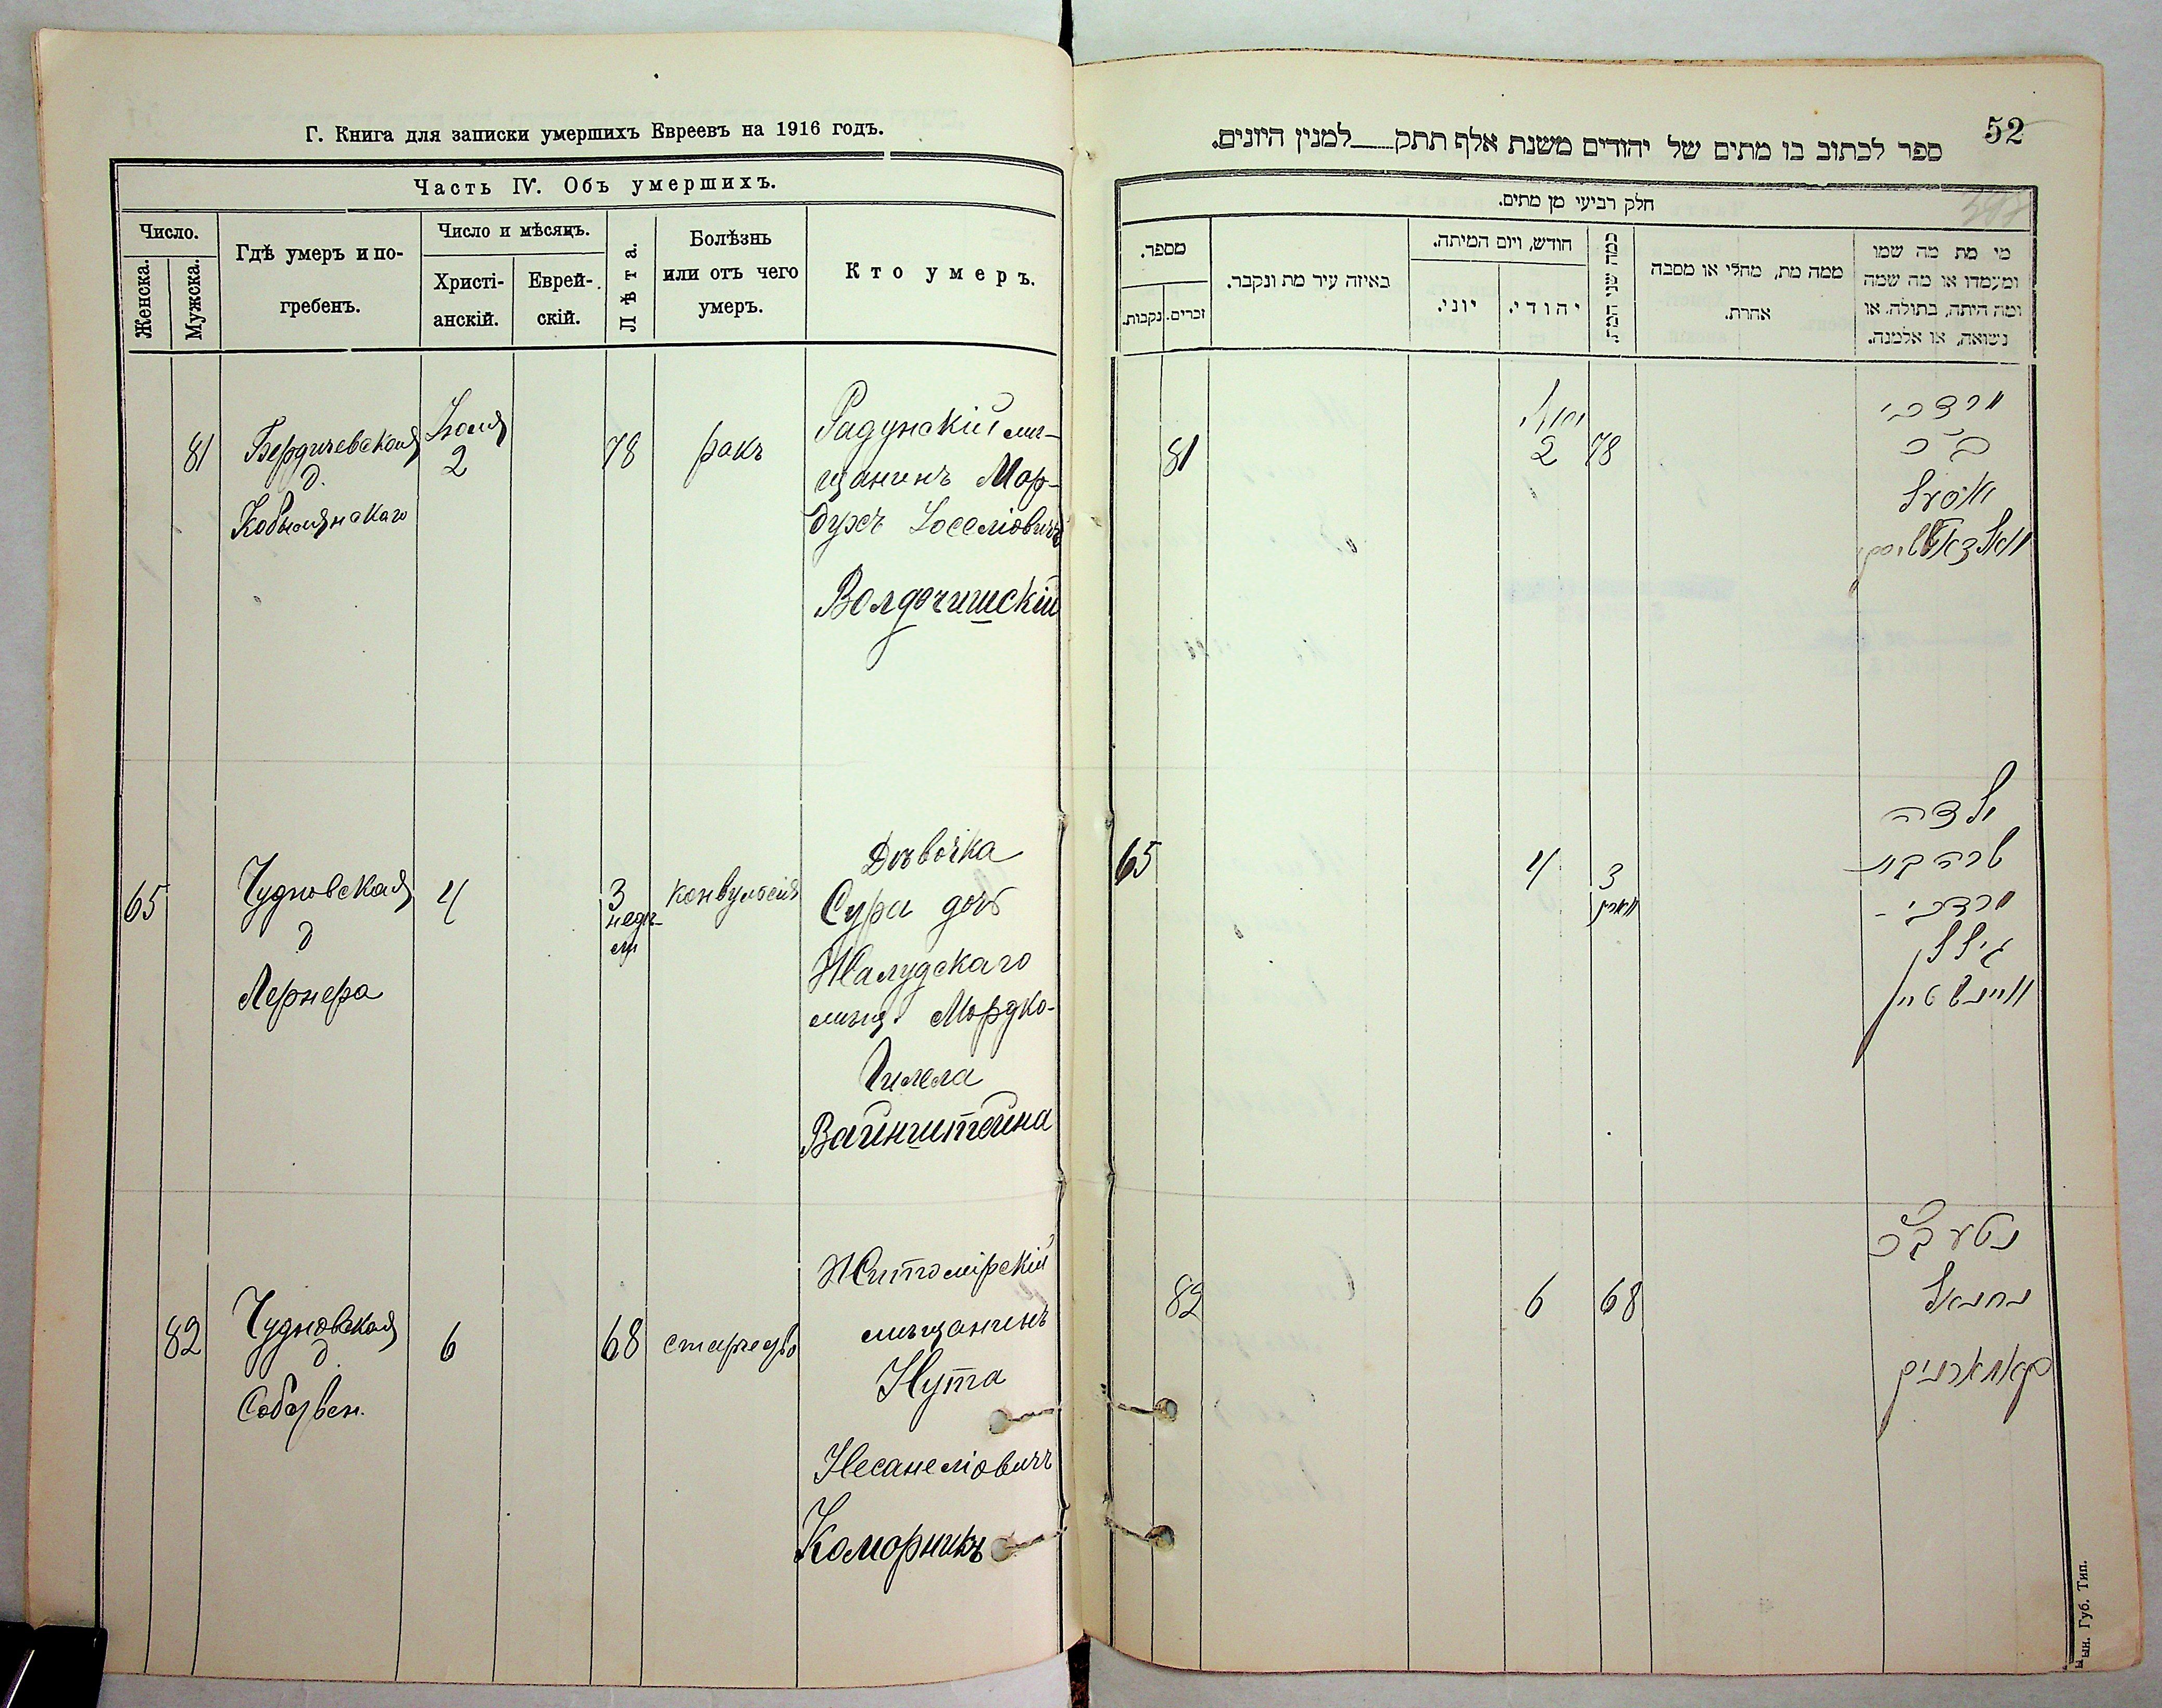 Г. Книга для записки умершихъ Евреевъ на 1916 годъ.
Часть IV. Объ умершихъ.
Число.
Женска.
Мужска.
Гдѣ умеръ и по-
гребенъ.
Число и мѣсяцъ.
Христі-
анскій.
Еврей-
скій.
Лѣта.
Болѣзнь
или отъ чего
умеръ.
Кто умеръ.
81
Бердичевская
д.
Кобылянскаго
Іюля
2
78
ракъ
Радунскій мѣ-
щанинъ Мор-
духъ Іоселіовичъ
Волдочишскій
65
Чудновская
д
Лернера
4
3
недѣ-
ли
конвульсія
Дѣвочка
Сура дочь
Жалудскаго
мѣщ. Мордко-
Гилела
Вайнштейна
82
Чудновская
д
6
68
старость
Житомірскій
мѣщанинъ
Нута
Несанеліовичъ
Коморникъ
52
ספר לכתוב בו מתים של יהודים משנת אלף תתק למנין היונים.
חלק רביעי מן מתים.
מספר.
נקבות.
זכרים.
באיזה עיר מת ונקבר.
חודש, ויום המיתה.
יוני.
יהודי.
כמה שני המת.
ממה מת, מחלי או מסבה
אהרת.
מי מת מה שמו
ומעמדו או מה שמה
ומה היתה, בתולה, או
נשואה, או אלמנה.
81
יולי
2
78
מרדכי
ב״כ
65
4
3
ילדה
שרה בת
מרדכי -
גילל
וויינשטיין
82
6
68
נטע ב״כ
נתנאל
קאמארניק
ын. Губ. Тип.